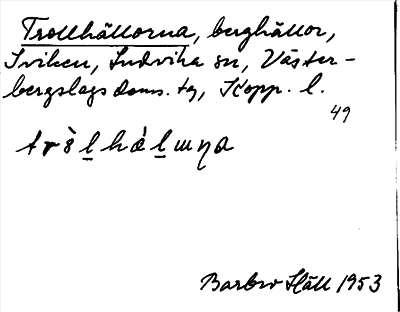 Trollhällorna, berghällor,
Iviken, Ludvika sn, Väster-
bergslags doms. tg, Kopp. l.
49
Barbro Häll 1953